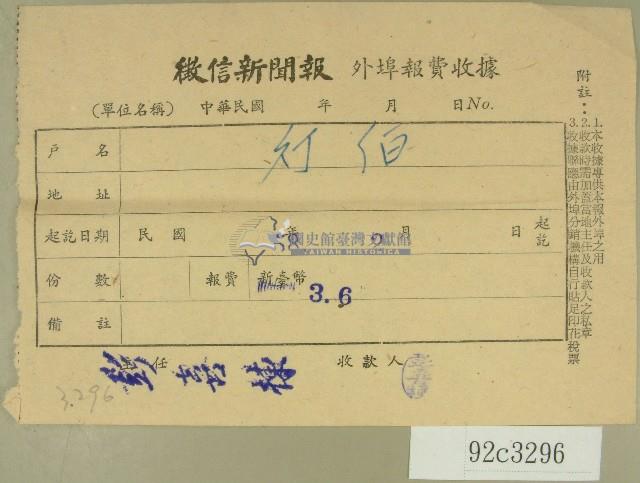 徵信新聞報 外埠報費收據
(單位名稱) 中華民國 年 月 日 No.
戶名
地址
起訖日期 民國 年 月 日 起訖
份數 報費 新臺幣 36
備註
主任 收款人
附註：
1.本收據專供本報外埠之用
2.收款時需加蓋當地主任及收款人之私章
3.收據聯應由外埠分銷機構自行貼足印花稅票
國史館臺灣文獻館
TAIWAN HISTORICA
3.296
92c3296